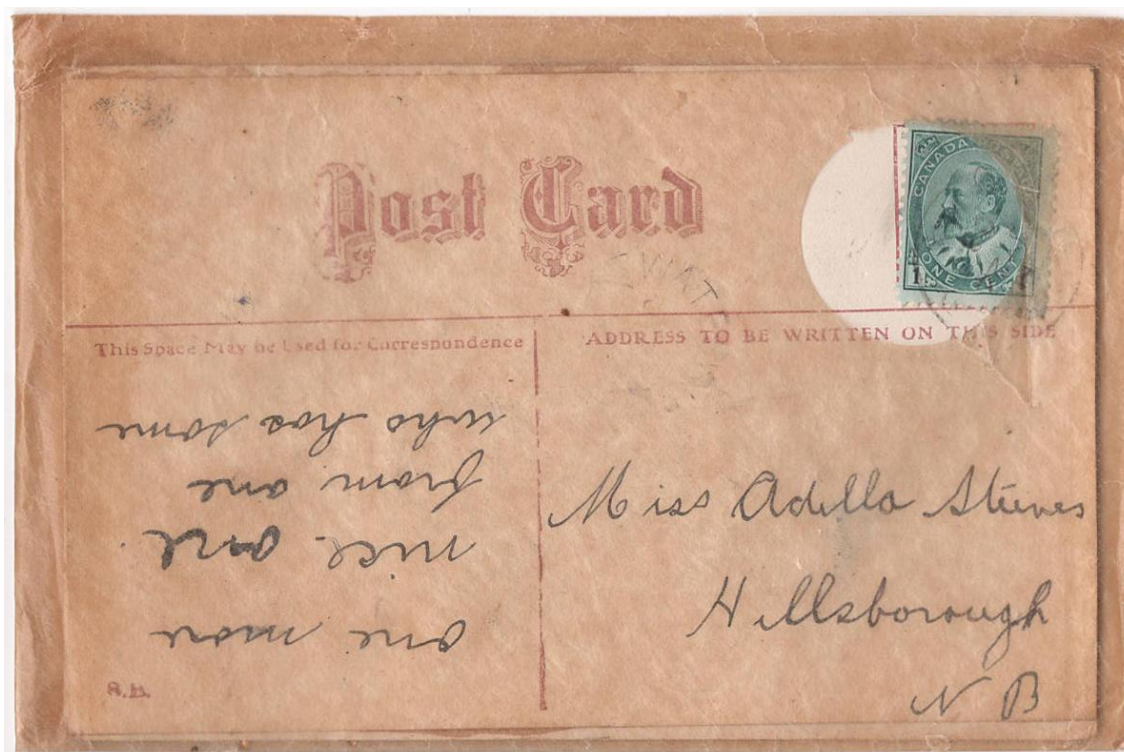 Post Card
CANADA
ONE CENT
1
This Space May be Used for Correspondence
ADDRESS TO BE WRITTEN ON THIS SIDE
one more
nice one.
from one
who has some
Miss Adella Steeves
Hillsborough
N B
S.B.